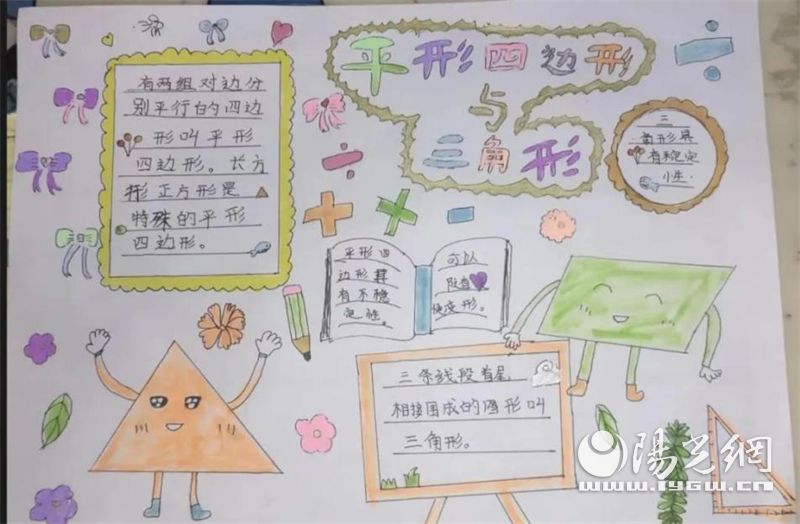 平形四边形
与
三角形
有两组对边分
别平行的四边
形叫平形
四边形。长方
形 正方形是
特殊的平形
四边形。
三
角形具
有稳定
小生.
平形四
边形具
有不稳
定性。
可以
随着
使变形。
三条线段首尾
相接围成的图形叫
三角形。
陽光網
www.iygw.cn